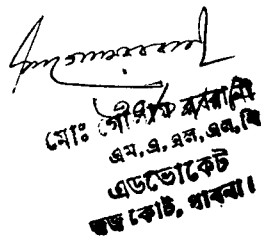 মোঃ গোলাম রব্বানী
এম, এ, এল, এল, বি
এডভোকেট
জজ কোর্ট, পাবনা।